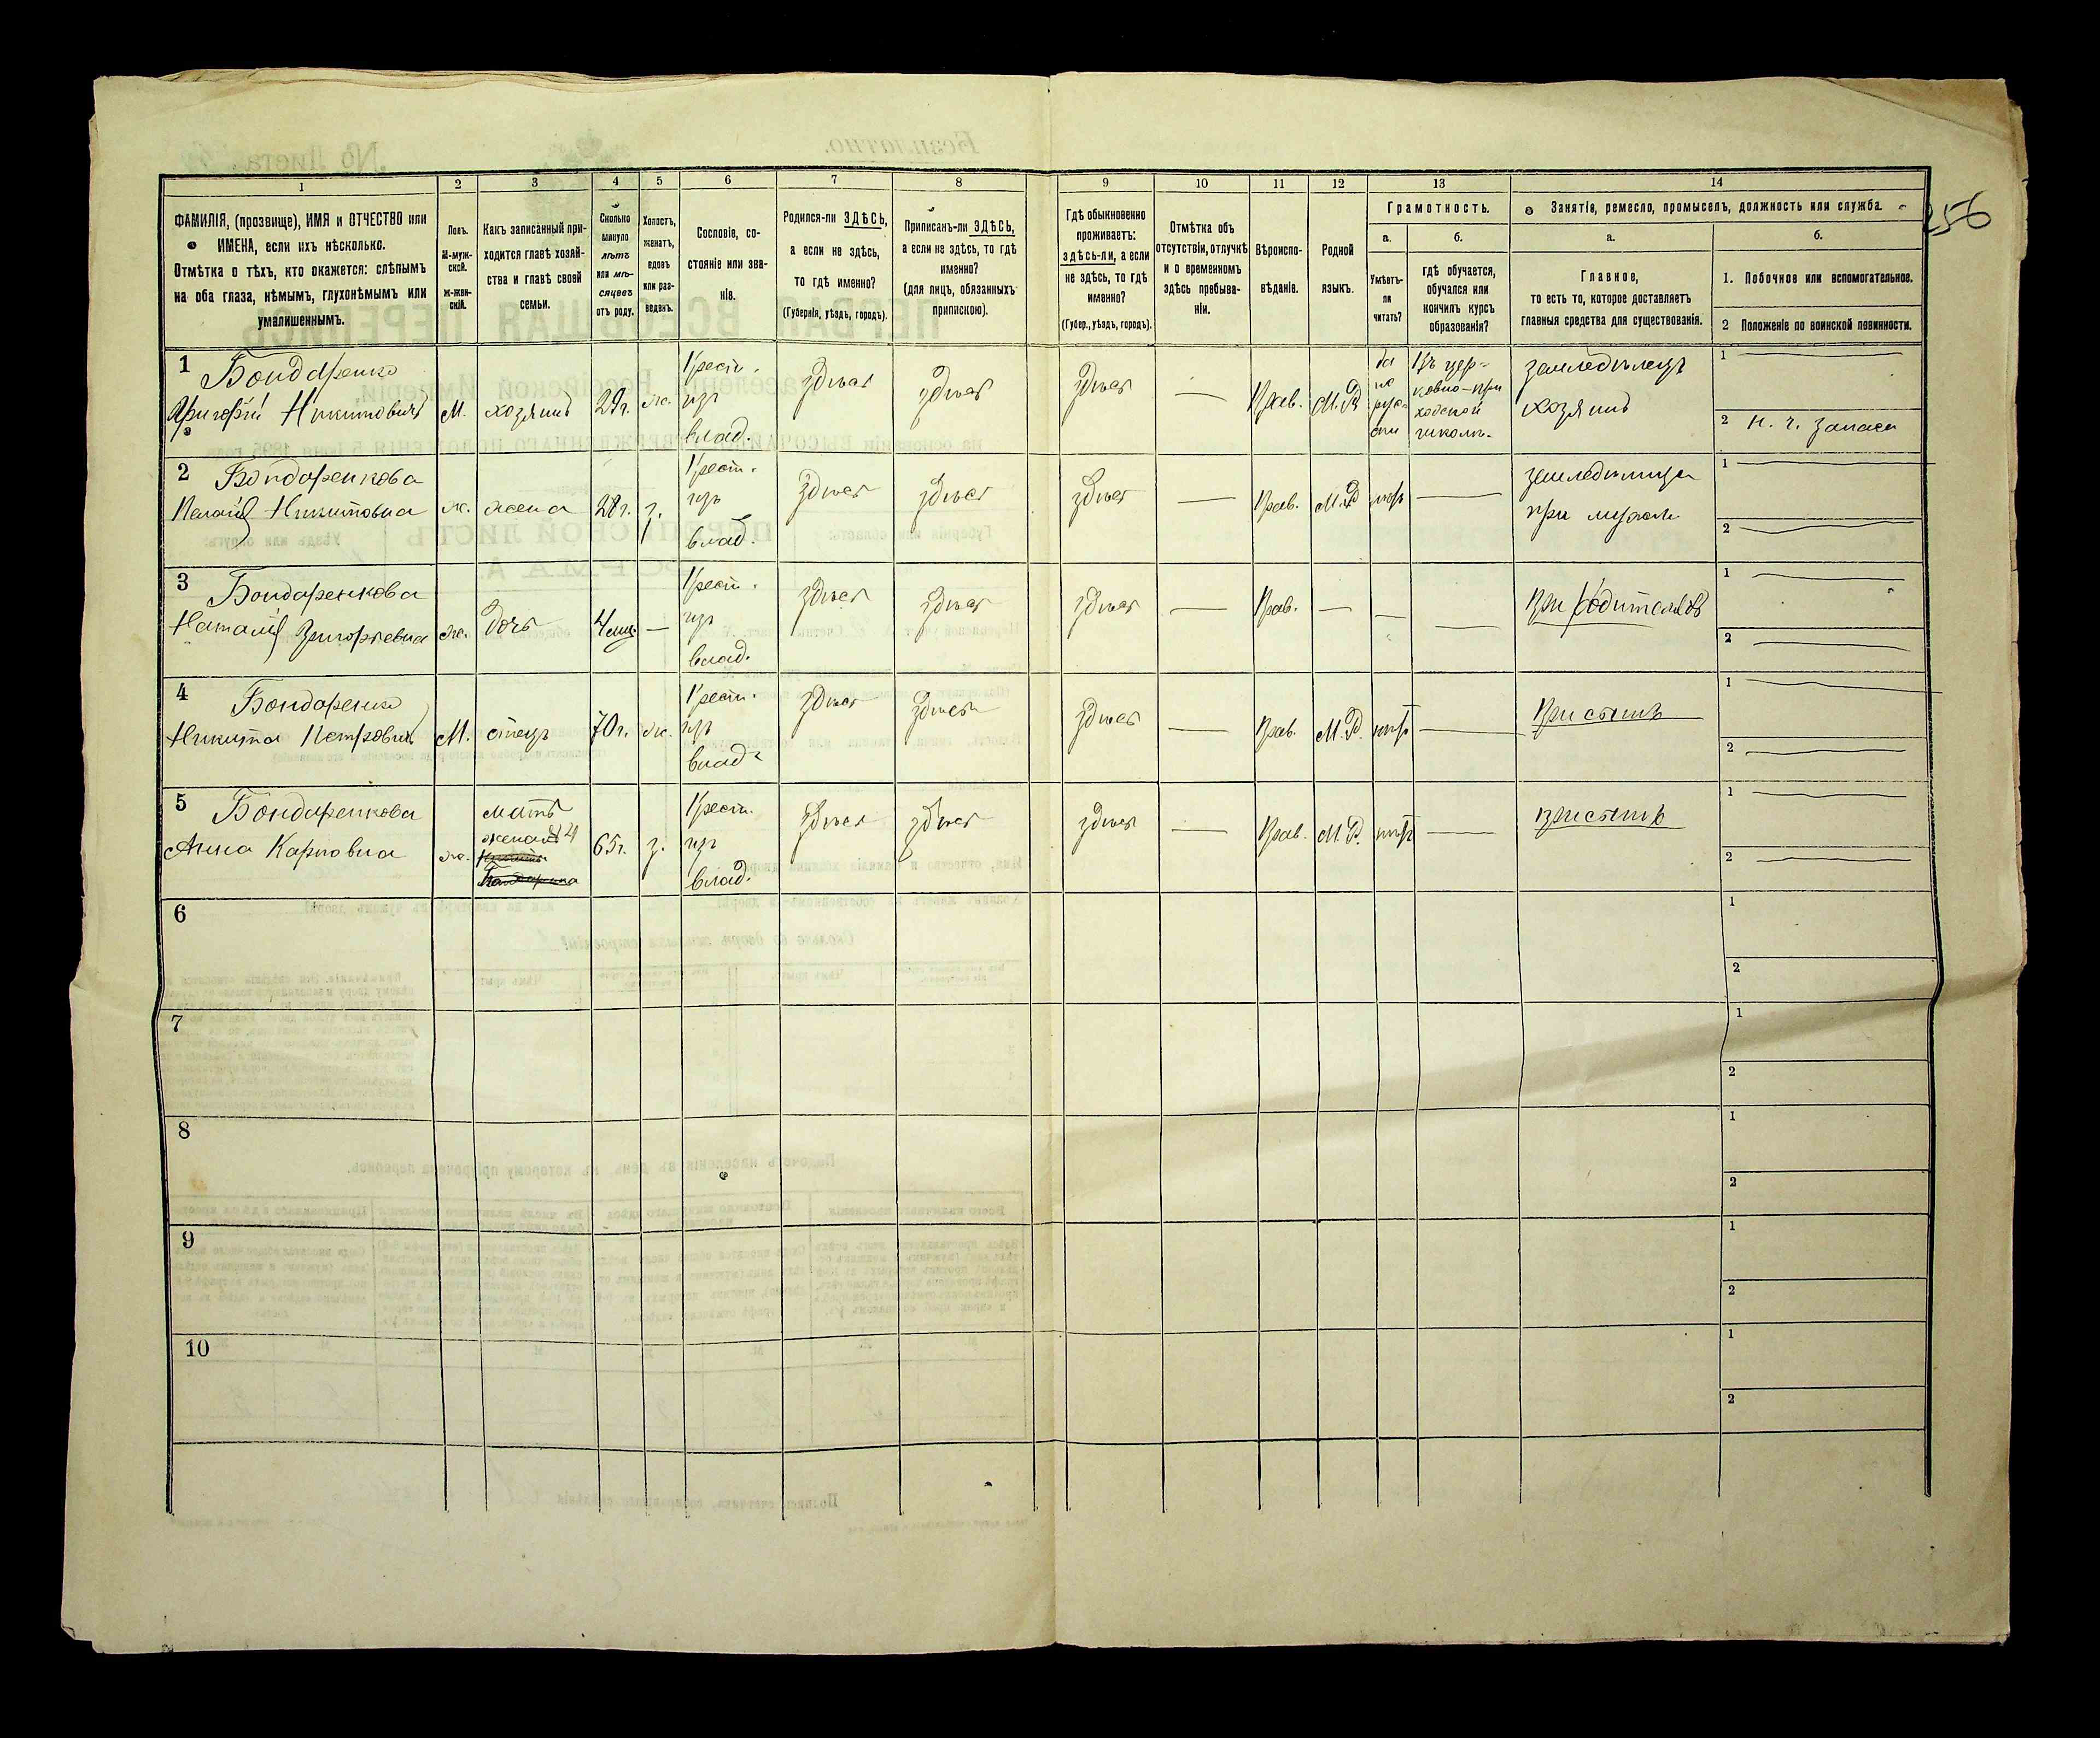 256
1 2 3 4 5 6 7 8 9 10 11 12 13 14
ФАМИЛІЯ, (прозвище), ИМЯ и ОТЧЕСТВО или
ИМЕНА, если ихъ нѣсколько.
Отмѣтка о тѣхъ, кто окажется: слѣпымъ
на оба глаза, нѣмымъ, глухонѣмымъ или
умалишеннымъ.
Полъ.
М-муж-
ской.
ж-жен-
скій.
Какъ записанный при-
ходится главѣ хозяй-
ства и главѣ своей
семьи.
Сколько
минуло
лѣтъ
или мѣ-
сяцевъ
отъ роду.
Холостъ,
женатъ,
вдовъ
или раз-
веденъ.
Сословіе, со-
стояніе или зва-
ніе.
Родился-ли ЗДѢСЬ,
а если не здѣсь,
то гдѣ именно?
(Губернія, уѣздъ, городъ).
Приписанъ-ли ЗДѢСЬ,
а если не здѣсь, то гдѣ
именно?
(для лицъ, обязанныхъ
припискою).
Гдѣ обыкновенно
проживаетъ:
здѣсь-ли, а если
не здѣсь, то гдѣ
именно?
(Губер., уѣздъ, городъ).
Отмѣтка объ
отсутствіи, отлучкѣ
и о временномъ
здѣсь пребыва-
ніи.
Вѣроиспо-
вѣданіе.
Родной
языкъ.
Грамотность.
а.
Умѣетъ-
ли
читать?
б.
гдѣ обучается,
обучался или
кончилъ курсъ
образованія?
Занятіе, ремесло, промыселъ, должность или служба.
а.
Главное,
то есть то, которое доставляетъ
главныя средства для существованія.
б.
1. Побочное или вспомогательное.
2 Положеніе по воинской повинности.
1 Бондаренко
Григорій Никитовичъ
М.
хозяинъ
29г.
ж.
Крест.
изъ
влад.
здѣсь
здѣсь
здѣсь
—
Прав.
М.Р.
да
по
рус-
ски
Въ цер-
ковно-при
ходской
школѣ.
земледѣлецъ
хозяинъ
1 —
2 н. ч. запаса
2 Бондаренкова
Никитовна
ж.
жена
28г.
з.
Крест.
изъ
влад.
здѣсь
здѣсь
здѣсь
—
Прав.
М.Р.
нѣтъ
—
при мужѣ
1 —
2 —
3 Бондаренкова
Наталія Григорьевна
ж.
дочь
4 мѣс.
—
Крест.
изъ
влад.
здѣсь
здѣсь
здѣсь
—
Прав.
—
—
—
При родителяхъ
1 —
2 —
4 Бондаренко
Никита Петровичъ
М.
отецъ
70г.
ж.
Крест.
изъ
влад.
здѣсь
здѣсь
здѣсь
—
Прав.
М.Р.
нѣтъ
—
При сынѣ
1 —
2 —
5 Бондаренкова
Анна Карповна
ж.
мать
жена №4
65г.
з.
Крест.
изъ
влад.
здѣсь
здѣсь
здѣсь
—
Прав.
М.Р.
нѣтъ
—
при сынѣ
1 —
2 —
6
1
2
7
1
2
8
1
2
9
1
2
10
1
2